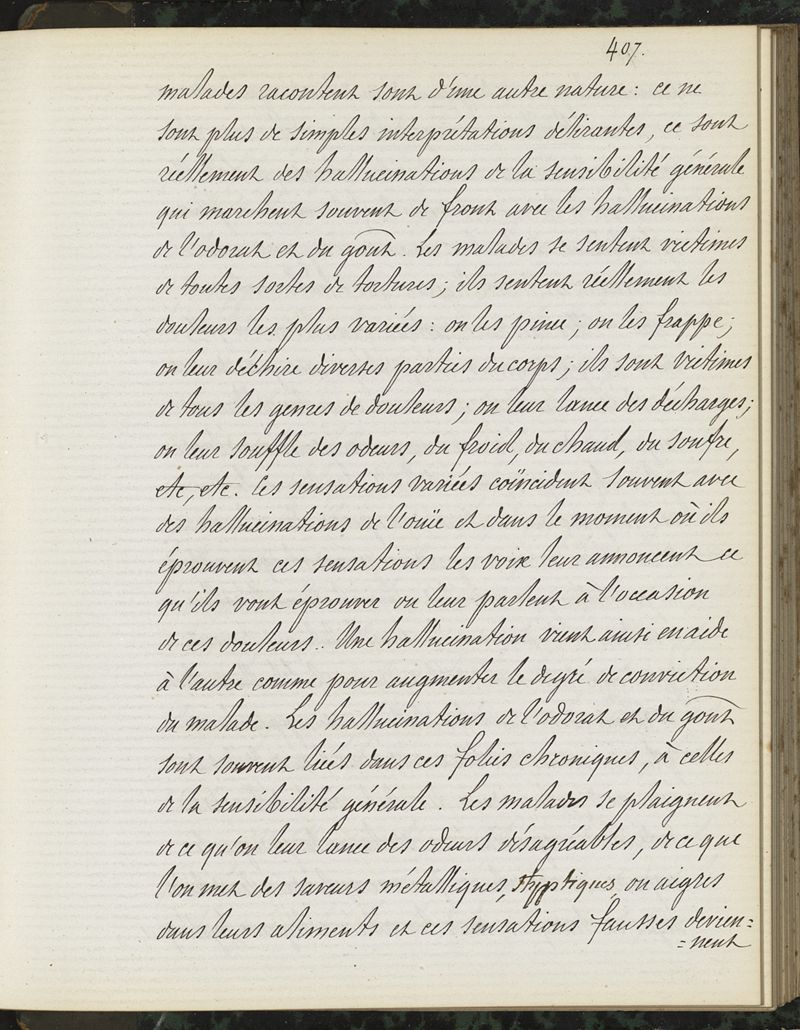 407.
malades racontent sont d'une autre nature : ce ne
sont plus de simples interprétations délirantes, ce sont
réellement des hallucinations de la sensibilité générale
qui marchent souvent de front avec les hallucinations
de l'odorat et du goût. Les malades se sentent victimes
de toutes sortes de tortures ; ils sentent réellement les
douleurs les plus variées : on les pince ; on les frappe ;
on leur déchire diverses parties du corps ; ils sont victimes
de tous les genres de douleurs ; on leur lance des décharges ;
on leur souffle des odeurs, du froid, du chaud, du soufre,
etc, etc. Ces sensations variées coïncident souvent avec
des hallucinations de l'ouïe et dans le moment où ils
éprouvent ces sensations les voix leur annoncent ce
qu'ils vont éprouver ou leur parlent à l'occasion
de ces douleurs. Une hallucination vient ainsi en aide
à l'autre comme pour augmenter le degré de conviction
du malade. Les hallucinations de l'odorat et du goût
sont souvent liées dans ces folies chroniques, à celles
de la sensibilité générale. Les malades se plaignent
de ce qu'on leur lance des odeurs désagréables, de ce que
l'on met des saveurs métalliques, styptiques, ou aigres
dans leurs aliments et ces sensations fausses devien=
=nent